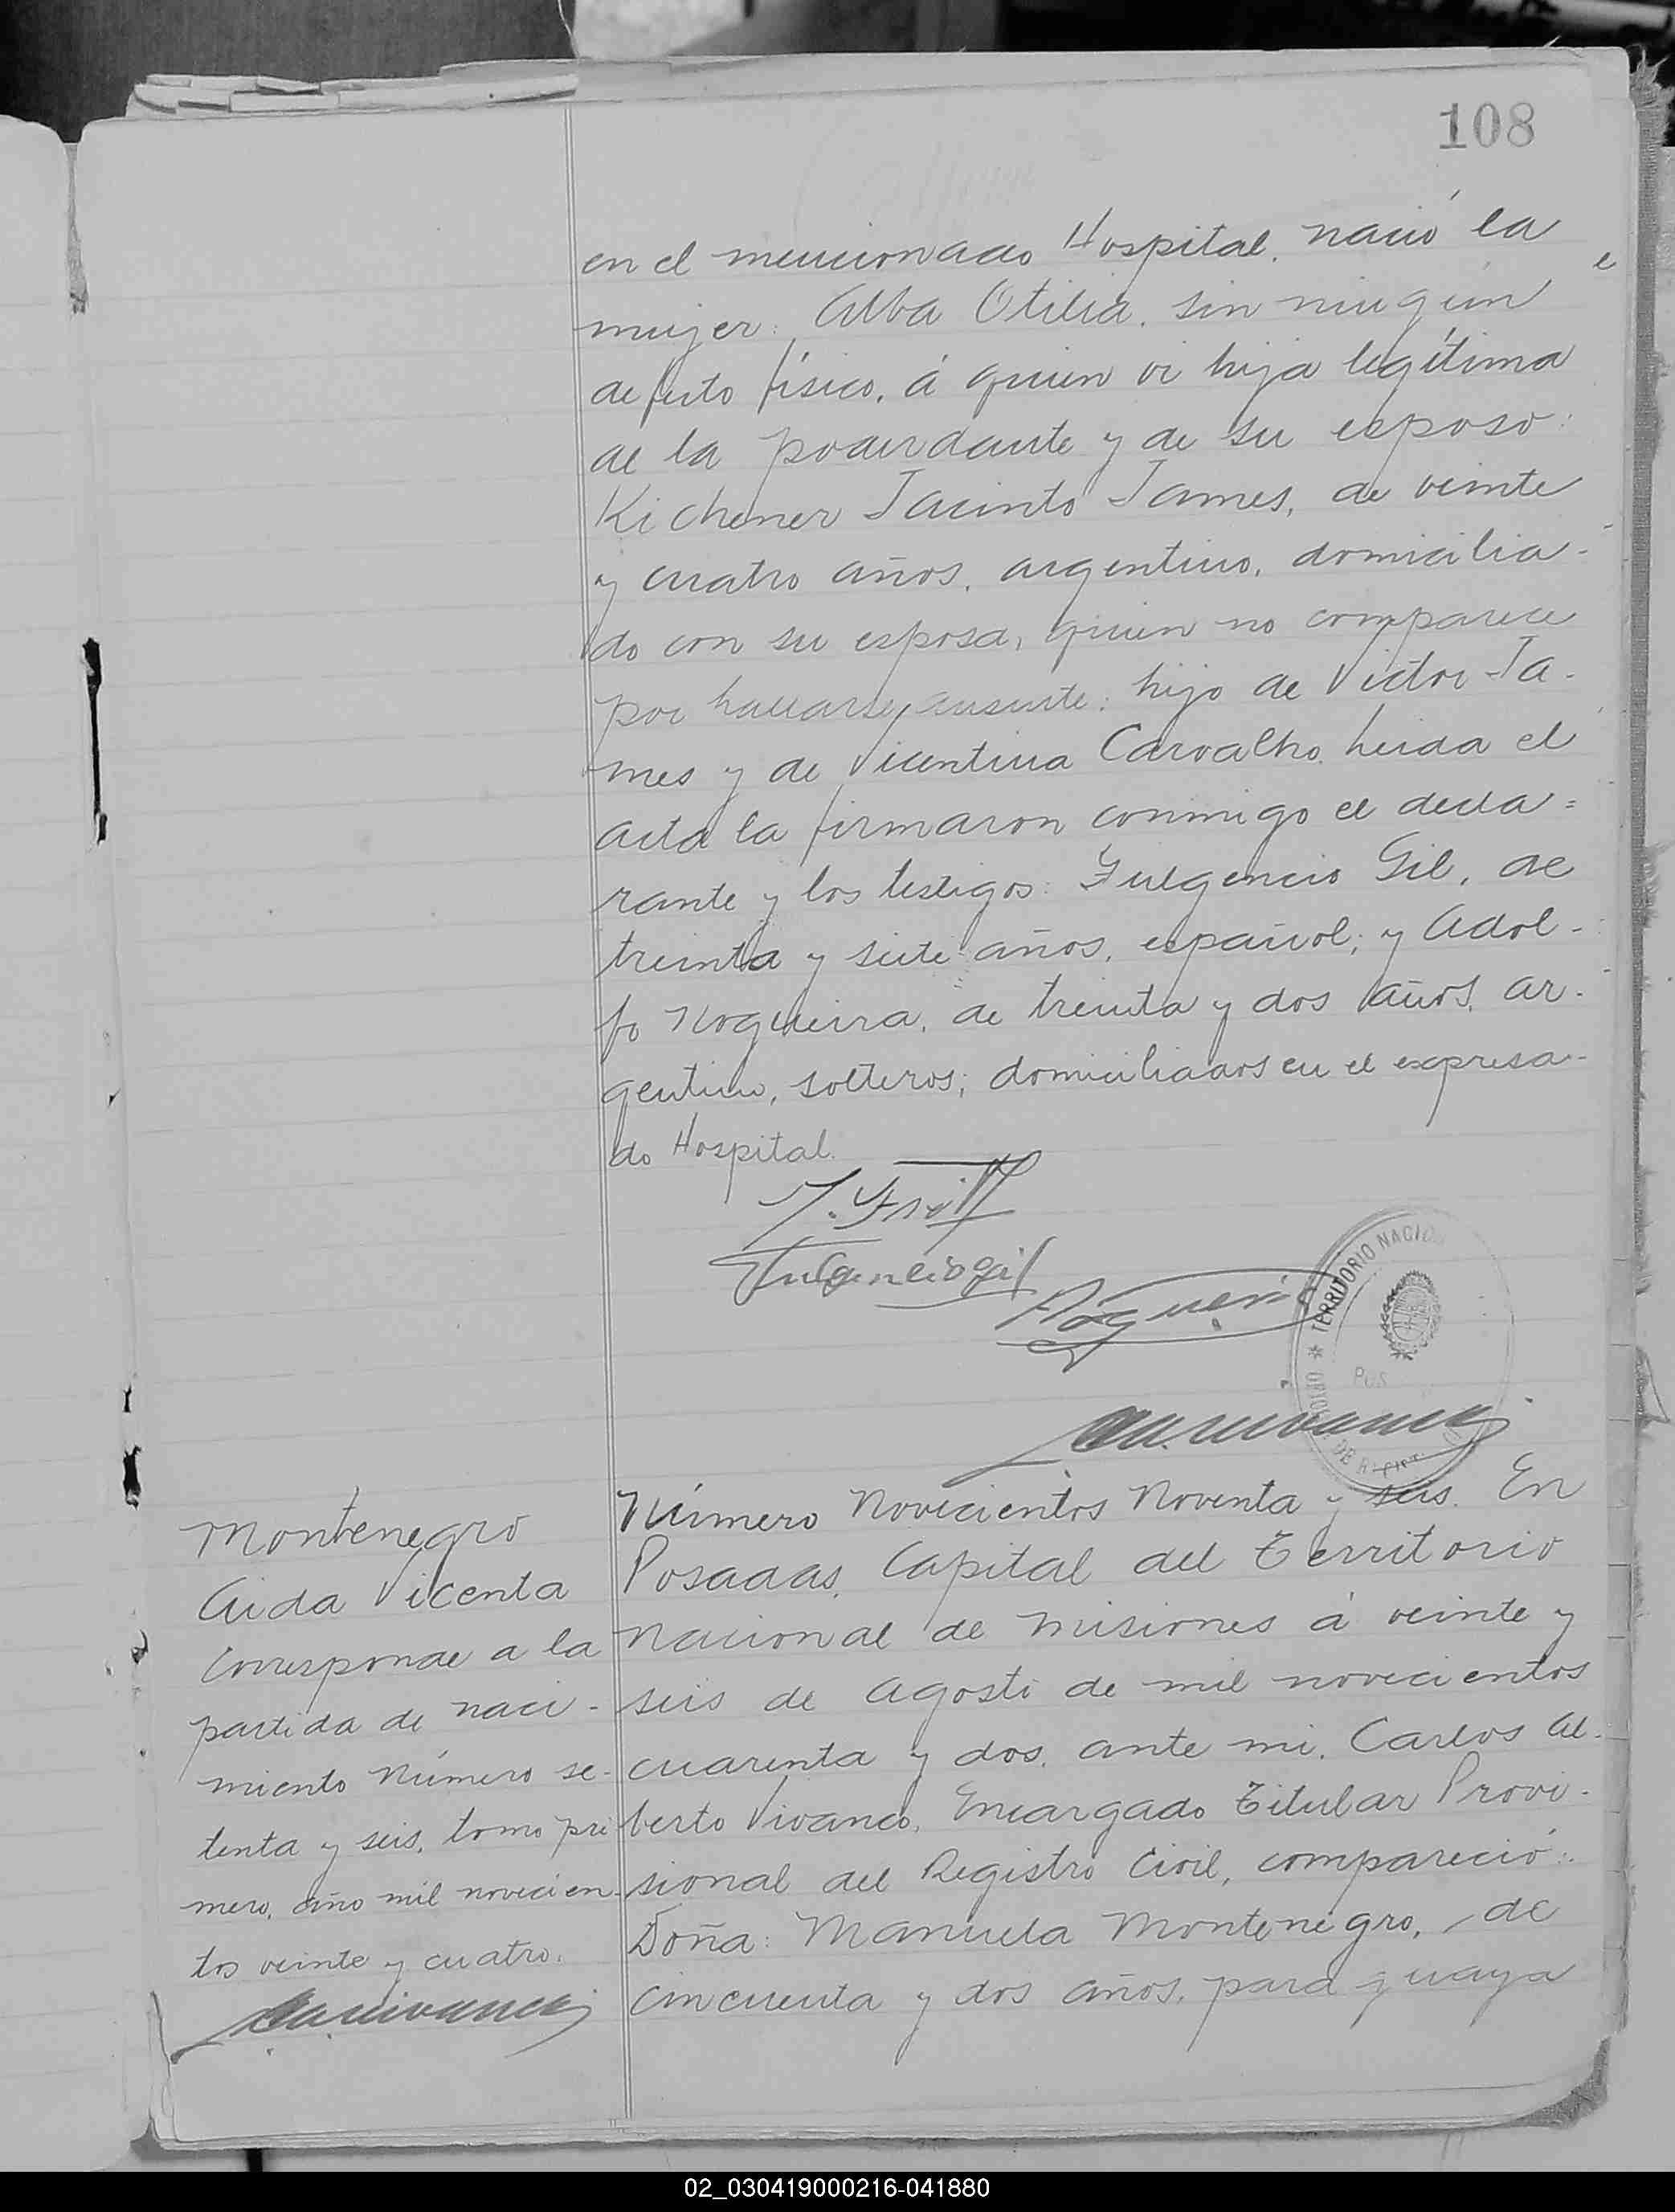 108
en el mencionado Hospital. nació la
mujer: Alba Otilia. sin ningún
defecto físico, á quien vi hija legítima
de la poderdante y de su esposo:
Kichener Jacinto James, de veinte
y cuatro años, argentino, domicilia-
do con su esposa, quien no comparece
por hallarse ausente: hijo de Victor Ja-
mes y de Vicentina Carvalho. Leida el
acta la firmaron conmigo el decla=
rante y los testigos: Fulgencio Gil, de
treinta y siete años, español; y Adol-
fo Nogueira, de treinta y dos años, ar-
gentino, solteros; domiciliados en el expresa-
do Hospital.
Fulgencio Gil
TERRITORIO NACIO
POS
Montenegro
Aida Vicenta
Corresponde a la
partida de naci-
miento Número se-
tenta y seis, tomo pri
mero, año mil novecien-
tos veinte y cuatro.
Número Novecientos Noventa y seis. En
Posadas, Capital del Territorio
Nacional de Misiones á veinte y
seis de Agosto de mil novecientos
cuarenta y dos, ante mi, Carlos Al-
berto Vivanco, Encargado Titular Provi-
sional del Registro Civil, compareció:
Doña: Manuela Montenegro, de
cincuenta y dos años, paraguaya
02_030419000216-041880